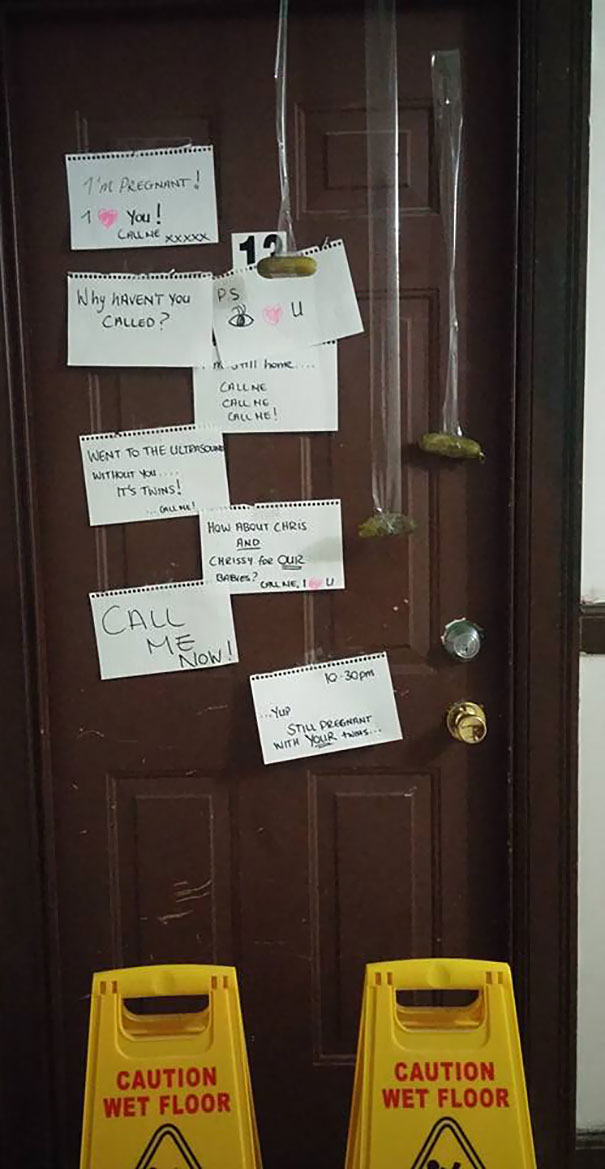 I'M PREGNANT!
I ❤ You!
CALL ME xxxxx
12
Why HAVEN'T YOU
CALLED?
PS
👁 ❤ U
Still home....
CALL ME
CALL ME
CALL ME!
WENT TO THE ULTRASOUND
WITHOUT YOU....
IT'S TWINS!
...CALL ME!
HOW ABOUT CHRIS
AND
CHRISSY for OUR
BABIES? CALL ME, I ❤ U
CALL
ME
NOW!
10-30pm
...YUP
STILL PREGNANT
WITH YOUR twins...
CAUTION
WET FLOOR
CAUTION
WET FLOOR